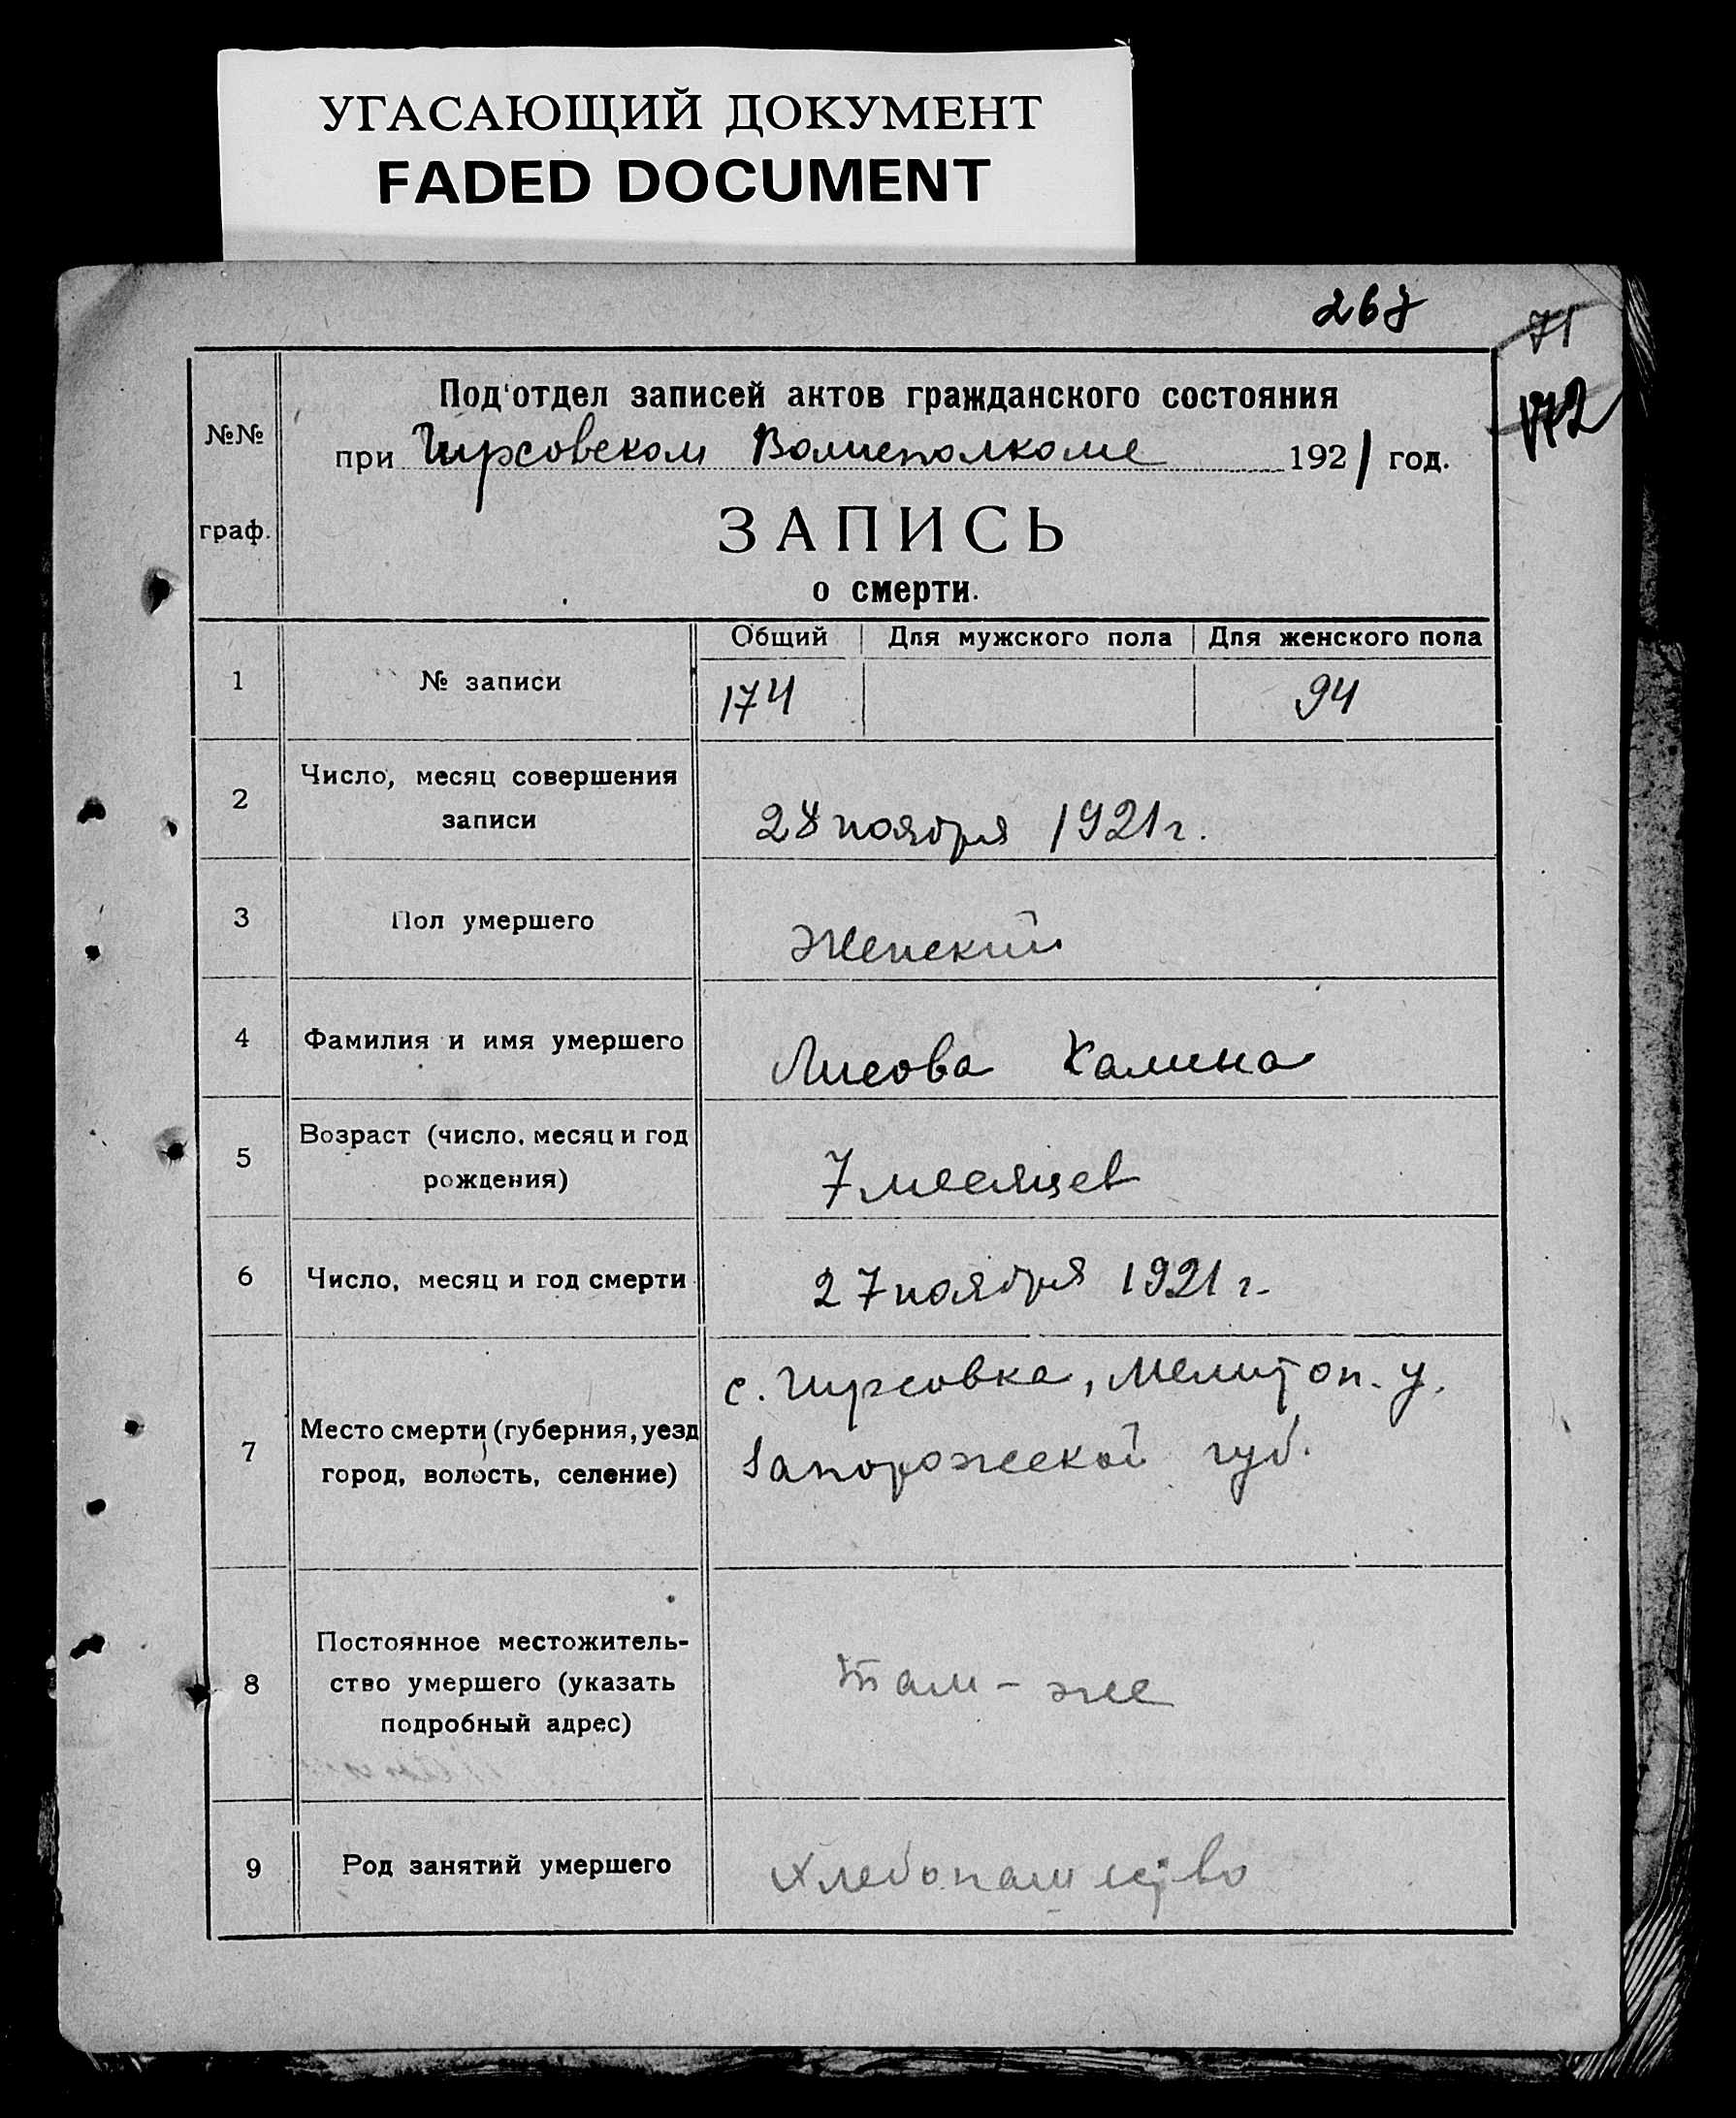 УГАСАЮЩИЙ ДОКУМЕНТ
FADED DOCUMENT
267
71
172
№№
граф.
Под'отдел записей актов гражданского состояния
при Гирсовском Волисполкоме 1921 год.
ЗАПИСЬ
о смерти.
Общий Для мужского пола Для женского пола
1 № записи 174 94
2 Число, месяц совершения
записи
28 ноября 1921 г.
3 Пол умершего Женский
4 Фамилия и имя умершего Лисова Халина
5 Возраст (число, месяц и год
рождения)
7 месяцев
6 Число, месяц и год смерти 27 ноября 1921 г.
7 Место смерти (губерния, уезд
город, волость, селение)
с. Гирсовка, Мелитоп. у.
Запорожской губ.
8 Постоянное местожитель-
ство умершего (указать
подробный адрес)
Там - же
9 Род занятий умершего Хлебопашество